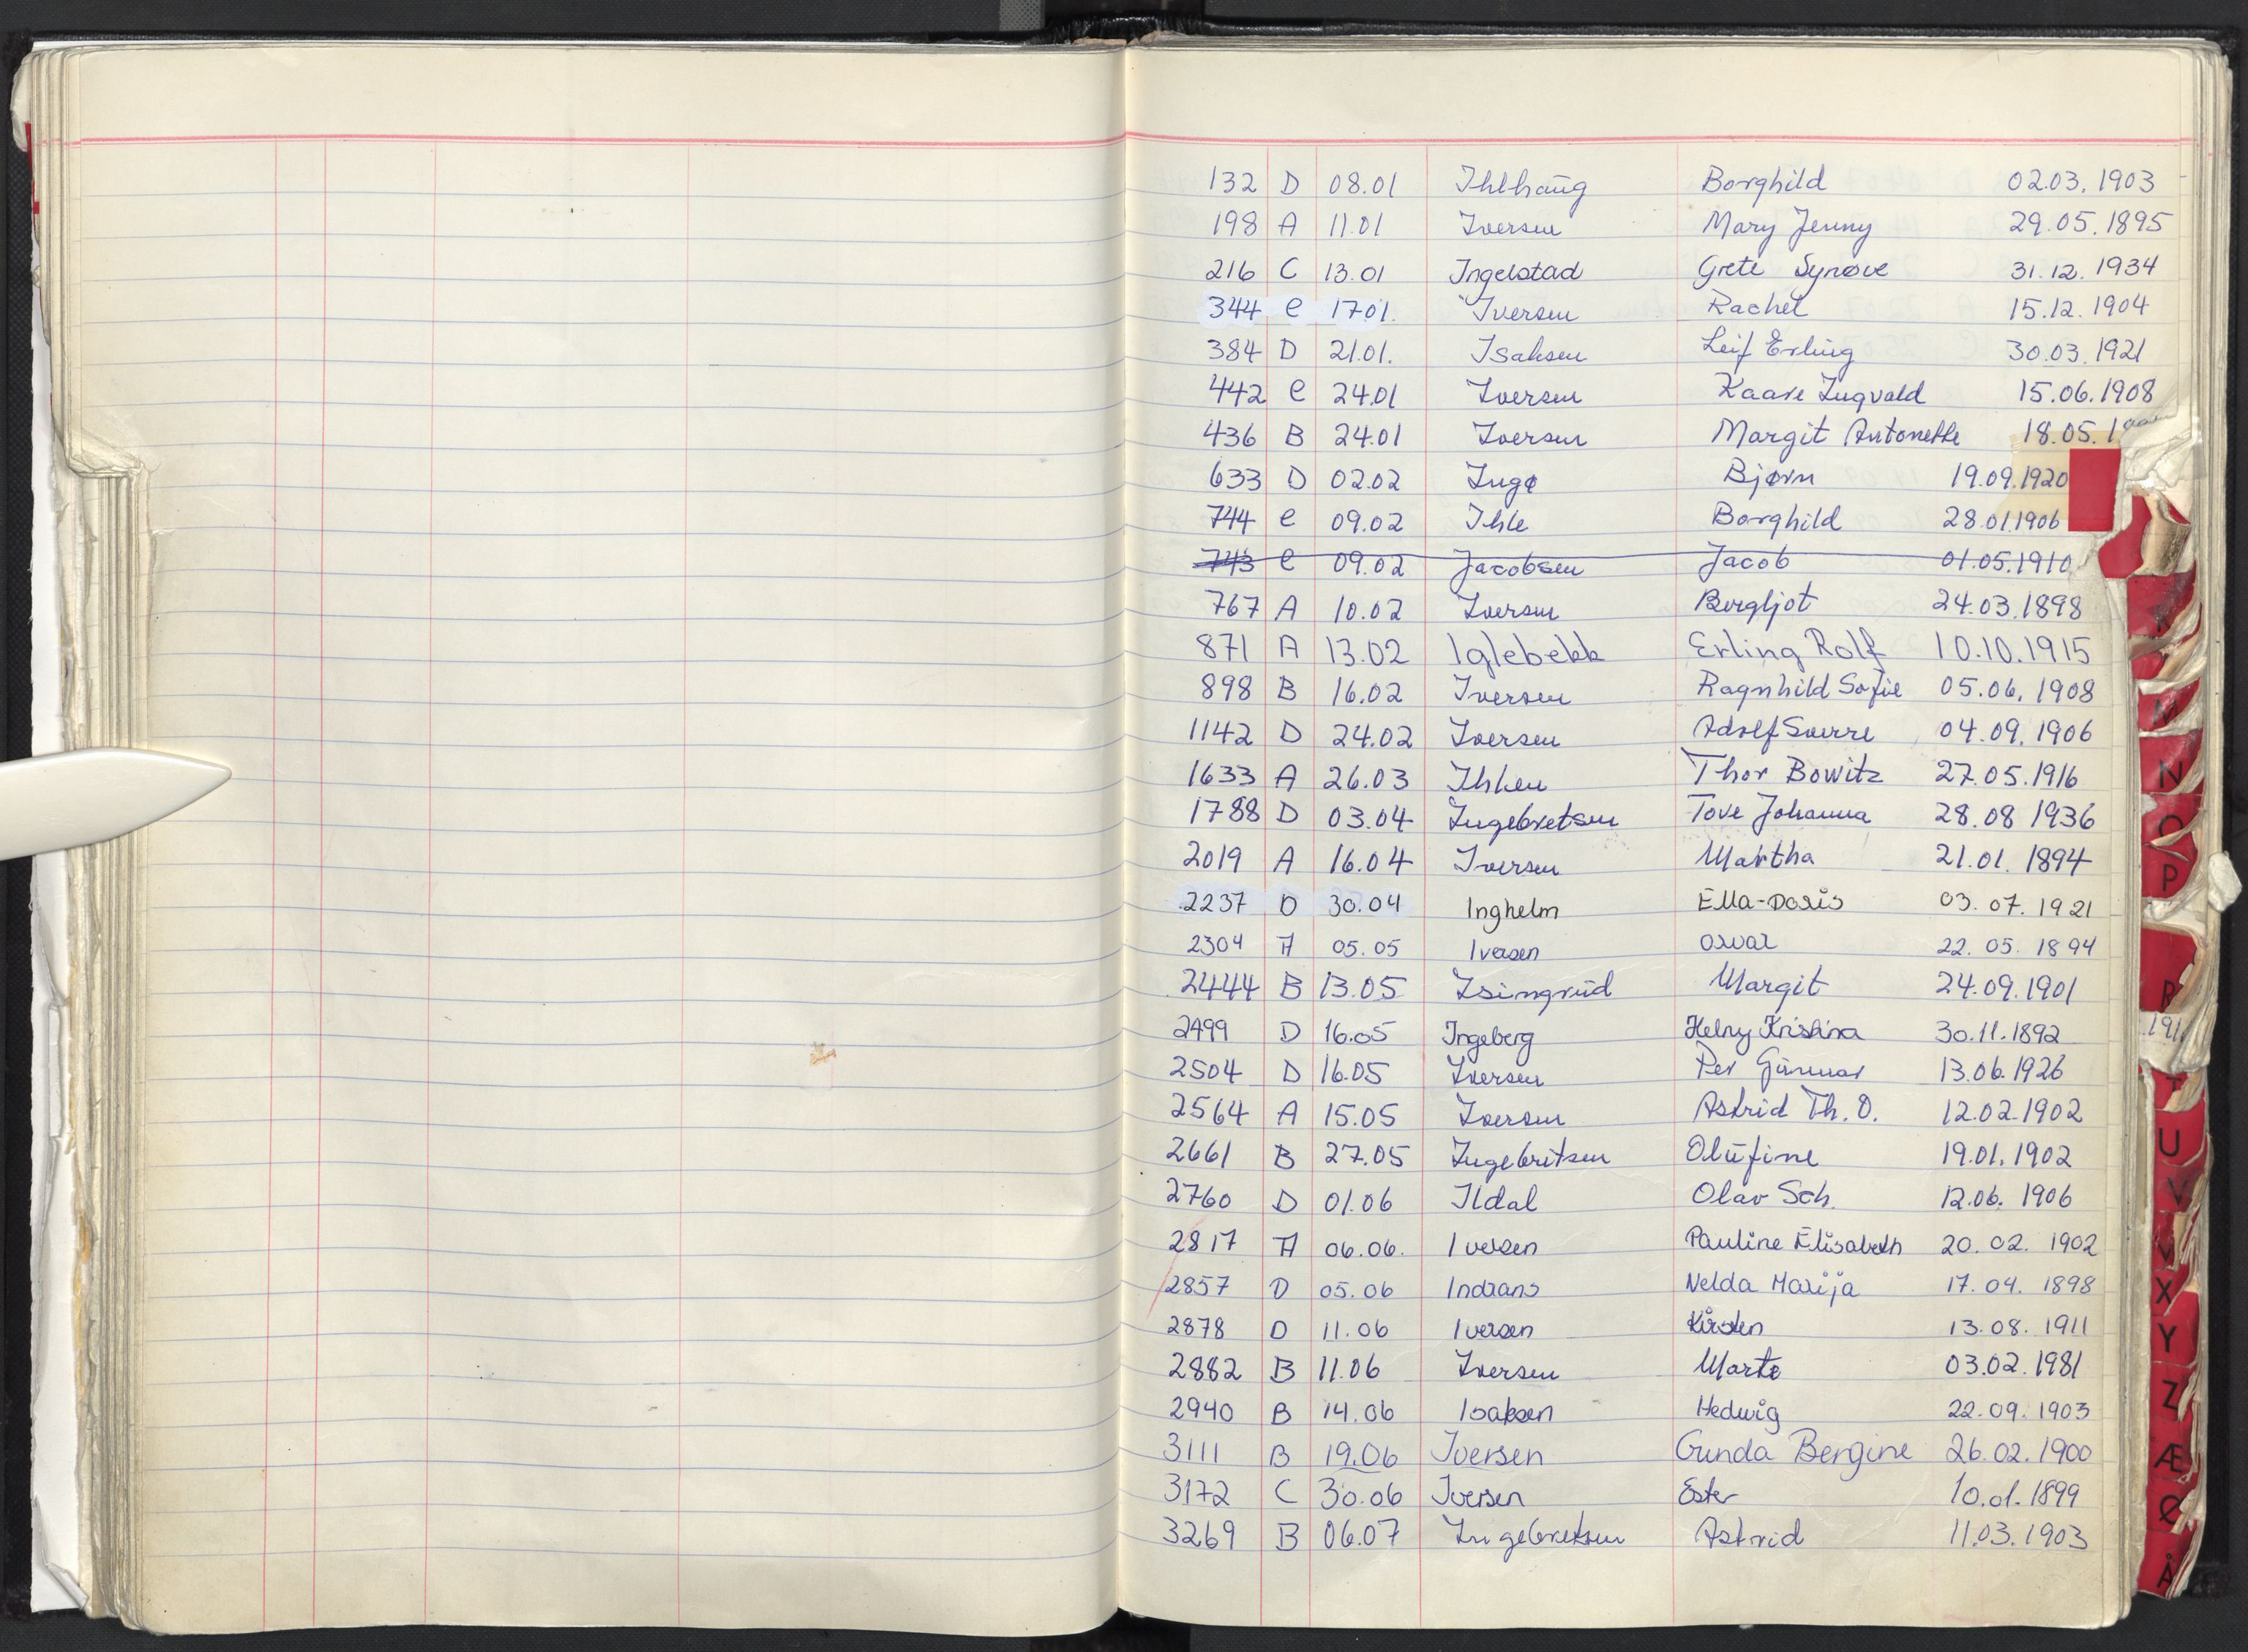 132 D 08.01 Ihlhaug Borghild 02.03.1903
198 A 11.01 Iversen Mary Jenny 29.05.1895
216 C 13.01 Ingelstad Grete Synøve 31.12.1934
344 C 17.01. Iversen Rachel 15.12.1904
384 D 21.01. Isaksen Leif Erling 30.03.1921
442 C 24.01 Iversen Kaare Ingvald 15.06.1908
436 B 24.01 Iversen Margit Antonette 18.05.1
633 D 02.02 Ingø Bjørn 19.09.1920
744 C 09.02 Ihle Borghild 28.01.1906
743 C 09.02 Jacobsen Jacob 01.05.1910
767 A 10.02 Iversen Bergljot 24.03.1898
871 A 13.02 Iglebekk Erling Rolf 10.10.1915
898 B 16.02 Iversen Ragnhild Sofie 05.06.1908
1142 D 24.02 Iversen Adolf Sverre 04.09.1906
1633 A 26.03 Ihlen Thor Bowitz 27.05.1916
1788 D 03.04 Ingebretsen Tove Johanna 28.08 1936
2019 A 16.04 Iversen Martha 21.01.1894
2237 D 30.04 Inghelm Ella-Doris 03.07.1921
2304 A 05.05 Iversen Osvar 22.05.1894
2444 B 13.05 Isingrud Margit 24.09.1901
2499 D 16.05 Ingeberg Helny Kristina 30.11.1892
2504 D 16.05 Iversen Per Gunnar 13.06.1926
2564 A 15.05 Iversen Astrid Th. O. 12.02.1902
2661 B 27.05 Ingebritsen Olufine 19.01.1902
2760 D 01.06 Ildal Olav Sch. 12.06.1906
2817 A 06.06. Iversen Pauline Elisabeth 20.02.1902
2857 D 05.06 Indrans Velda Marija 17.04.1898
2878 D 11.06 Iversen Kirsten 13.08.1911
2882 B 11.06 Iversen Marte 03.02.1981
2940 B 14.06 Isaksen Hedwig 22.09.1903
3111 B 19.06 Iversen Gunda Bergine 26.02.1900
3172 C 30.06 Iversen Ester 10.01.1899
3269 B 06.07 Ingebretsen Astrid 11.03.1903
M
N
O
P
R
191
T
U
V
X
Y
Z
Æ
Ø
Å